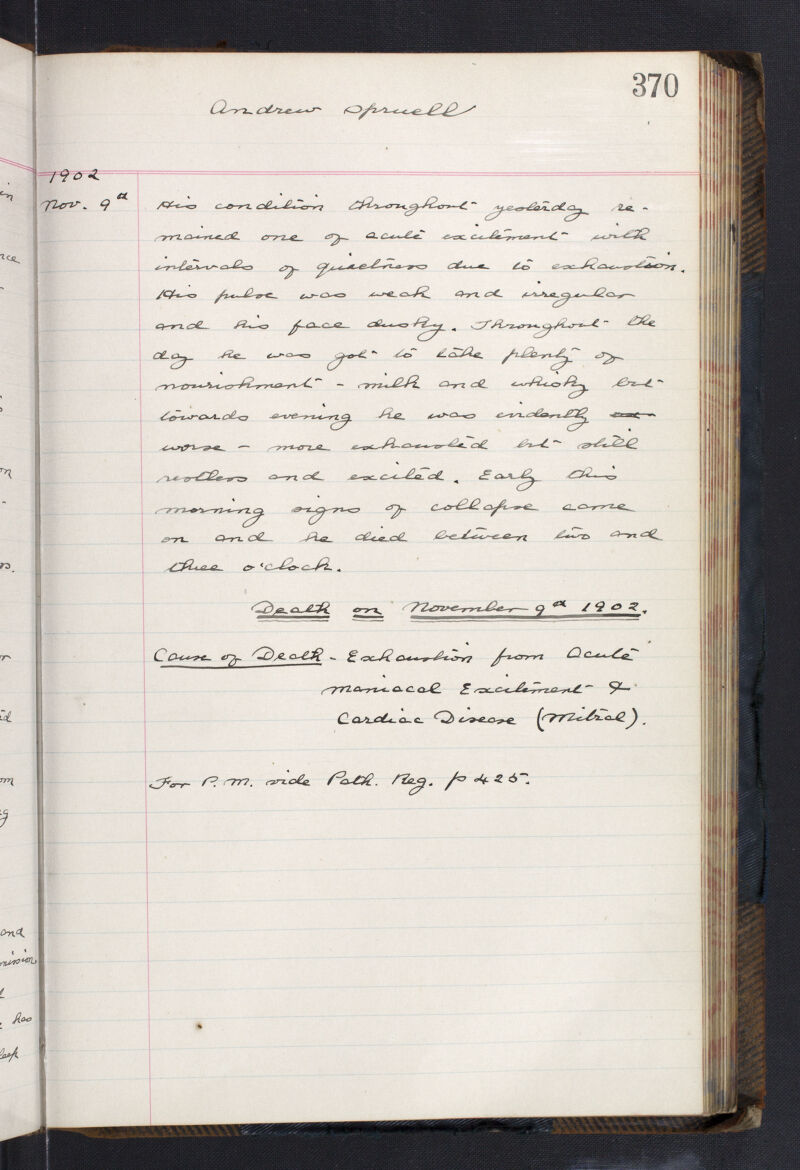 370
Andrew Spruell
1902
Nov. 9th
His condition throughout yesterday re-
mained one of acute excitement with
intervals of quietness due to exhaustion.
His pulse was weak and irregular
and his face dusky. Throughout the
day he was got to take plenty of
nourishment - milk and whisky but
towards evening he was evidently ex
worse - more exhausted but still
restless and excited. Early this
morning signs of collapse came
on and he died between two and
three o'clock.
Death on November 9th 1902.
Cause of Death - Exhaustion from Acute
Maniacal Excitement &
Cardiac Disease (Mitral).
For P. M. vide Path. Reg. p 425.
in
nce
on
os.
or
om
and
mission
has